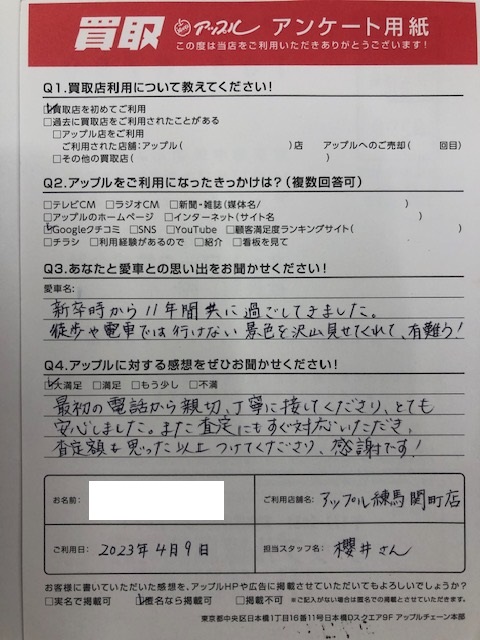 買取 アップル アンケート用紙
この度は当店をご利用いただきありがとうございます!
Q1.買取店利用について教えてください!
☑買取店を初めてご利用
□過去に買取店をご利用されたことがある
□アップル店をご利用
ご利用された店舗:アップル( )店 アップルへのご売却( 回目)
□その他の買取店( )
Q2.アップルをご利用になったきっかけは?(複数回答可)
□テレビCM □ラジオCM □新聞・雑誌(媒体名/ )
□アップルのホームページ □インターネット(サイト名 )
☑Googleクチコミ □SNS □YouTube □顧客満足度ランキングサイト( )
□チラシ □利用経験があるので □紹介 □看板を見て
Q3.あなたと愛車との思い出をお聞かせください!
愛車名:
新卒時から11年間共に過ごしてきました。
徒歩や電車では行けない景色を沢山見せてくれて、有難う!
Q4.アップルに対する感想をぜひお聞かせください!
☑大満足 □満足 □もう少し □不満
最初の電話から親切、丁寧に接してくださり、とても
安心しました。また査定にもすぐ対応いただき、
査定額も思った以上つけてくださり、感謝です!
お名前:
ご利用店舗名: アップル練馬関町店
ご利用日: 2023年4月9日
担当スタッフ名: 櫻井さん
お客様に書いていただいた感想を、アップルHPや広告に掲載させていただいてもよろしいでしょうか?
□実名で掲載可 ☑匿名なら掲載可 □掲載不可 ※ご記入がない場合は匿名での掲載とさせていただきます。
東京都中央区日本橋1丁目16番11号日本橋Dスクエア9F アップルチェーン本部